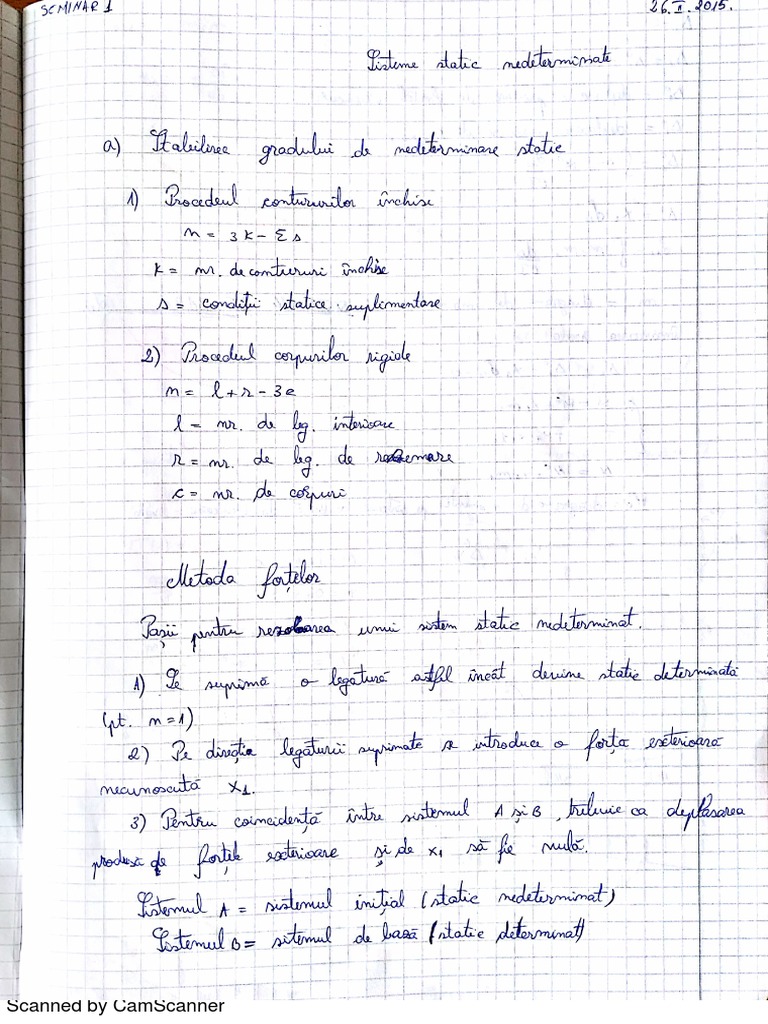 SEMINAR 1
26.II.2015.
Sisteme static nedeterminate
a) Stabilirea gradului de nedeterminare statie
1) Procedeul contururilor închise
n = 3k - Σs
k = nr. de contururi închise
s = condiții statice suplimentare
2) Procedeul corpurilor rigide
n = l + r - 3c
l = nr. de leg. interioare
r = nr. de leg. de rezemare
c = nr. de corpuri
Metoda forțelor
Pașii pentru rezolvarea unui sistem static nedeterminat.
1) Se suprimă o legătură astfil încât devine static determinată
(pt. n=1)
2) Pe direcția legăturii suprimate se introduce o forța exterioară
necunoscută x1.
3) Pentru coincidență între sistemul A și B, trebuie ca deplasarea
produsă de forțele exterioare și de x1 să fie nulă.
Sistemul A = sistemul inițial (static nedeterminat)
Sistemul B = sitemul de bază (static determinat)
Scanned by CamScanner